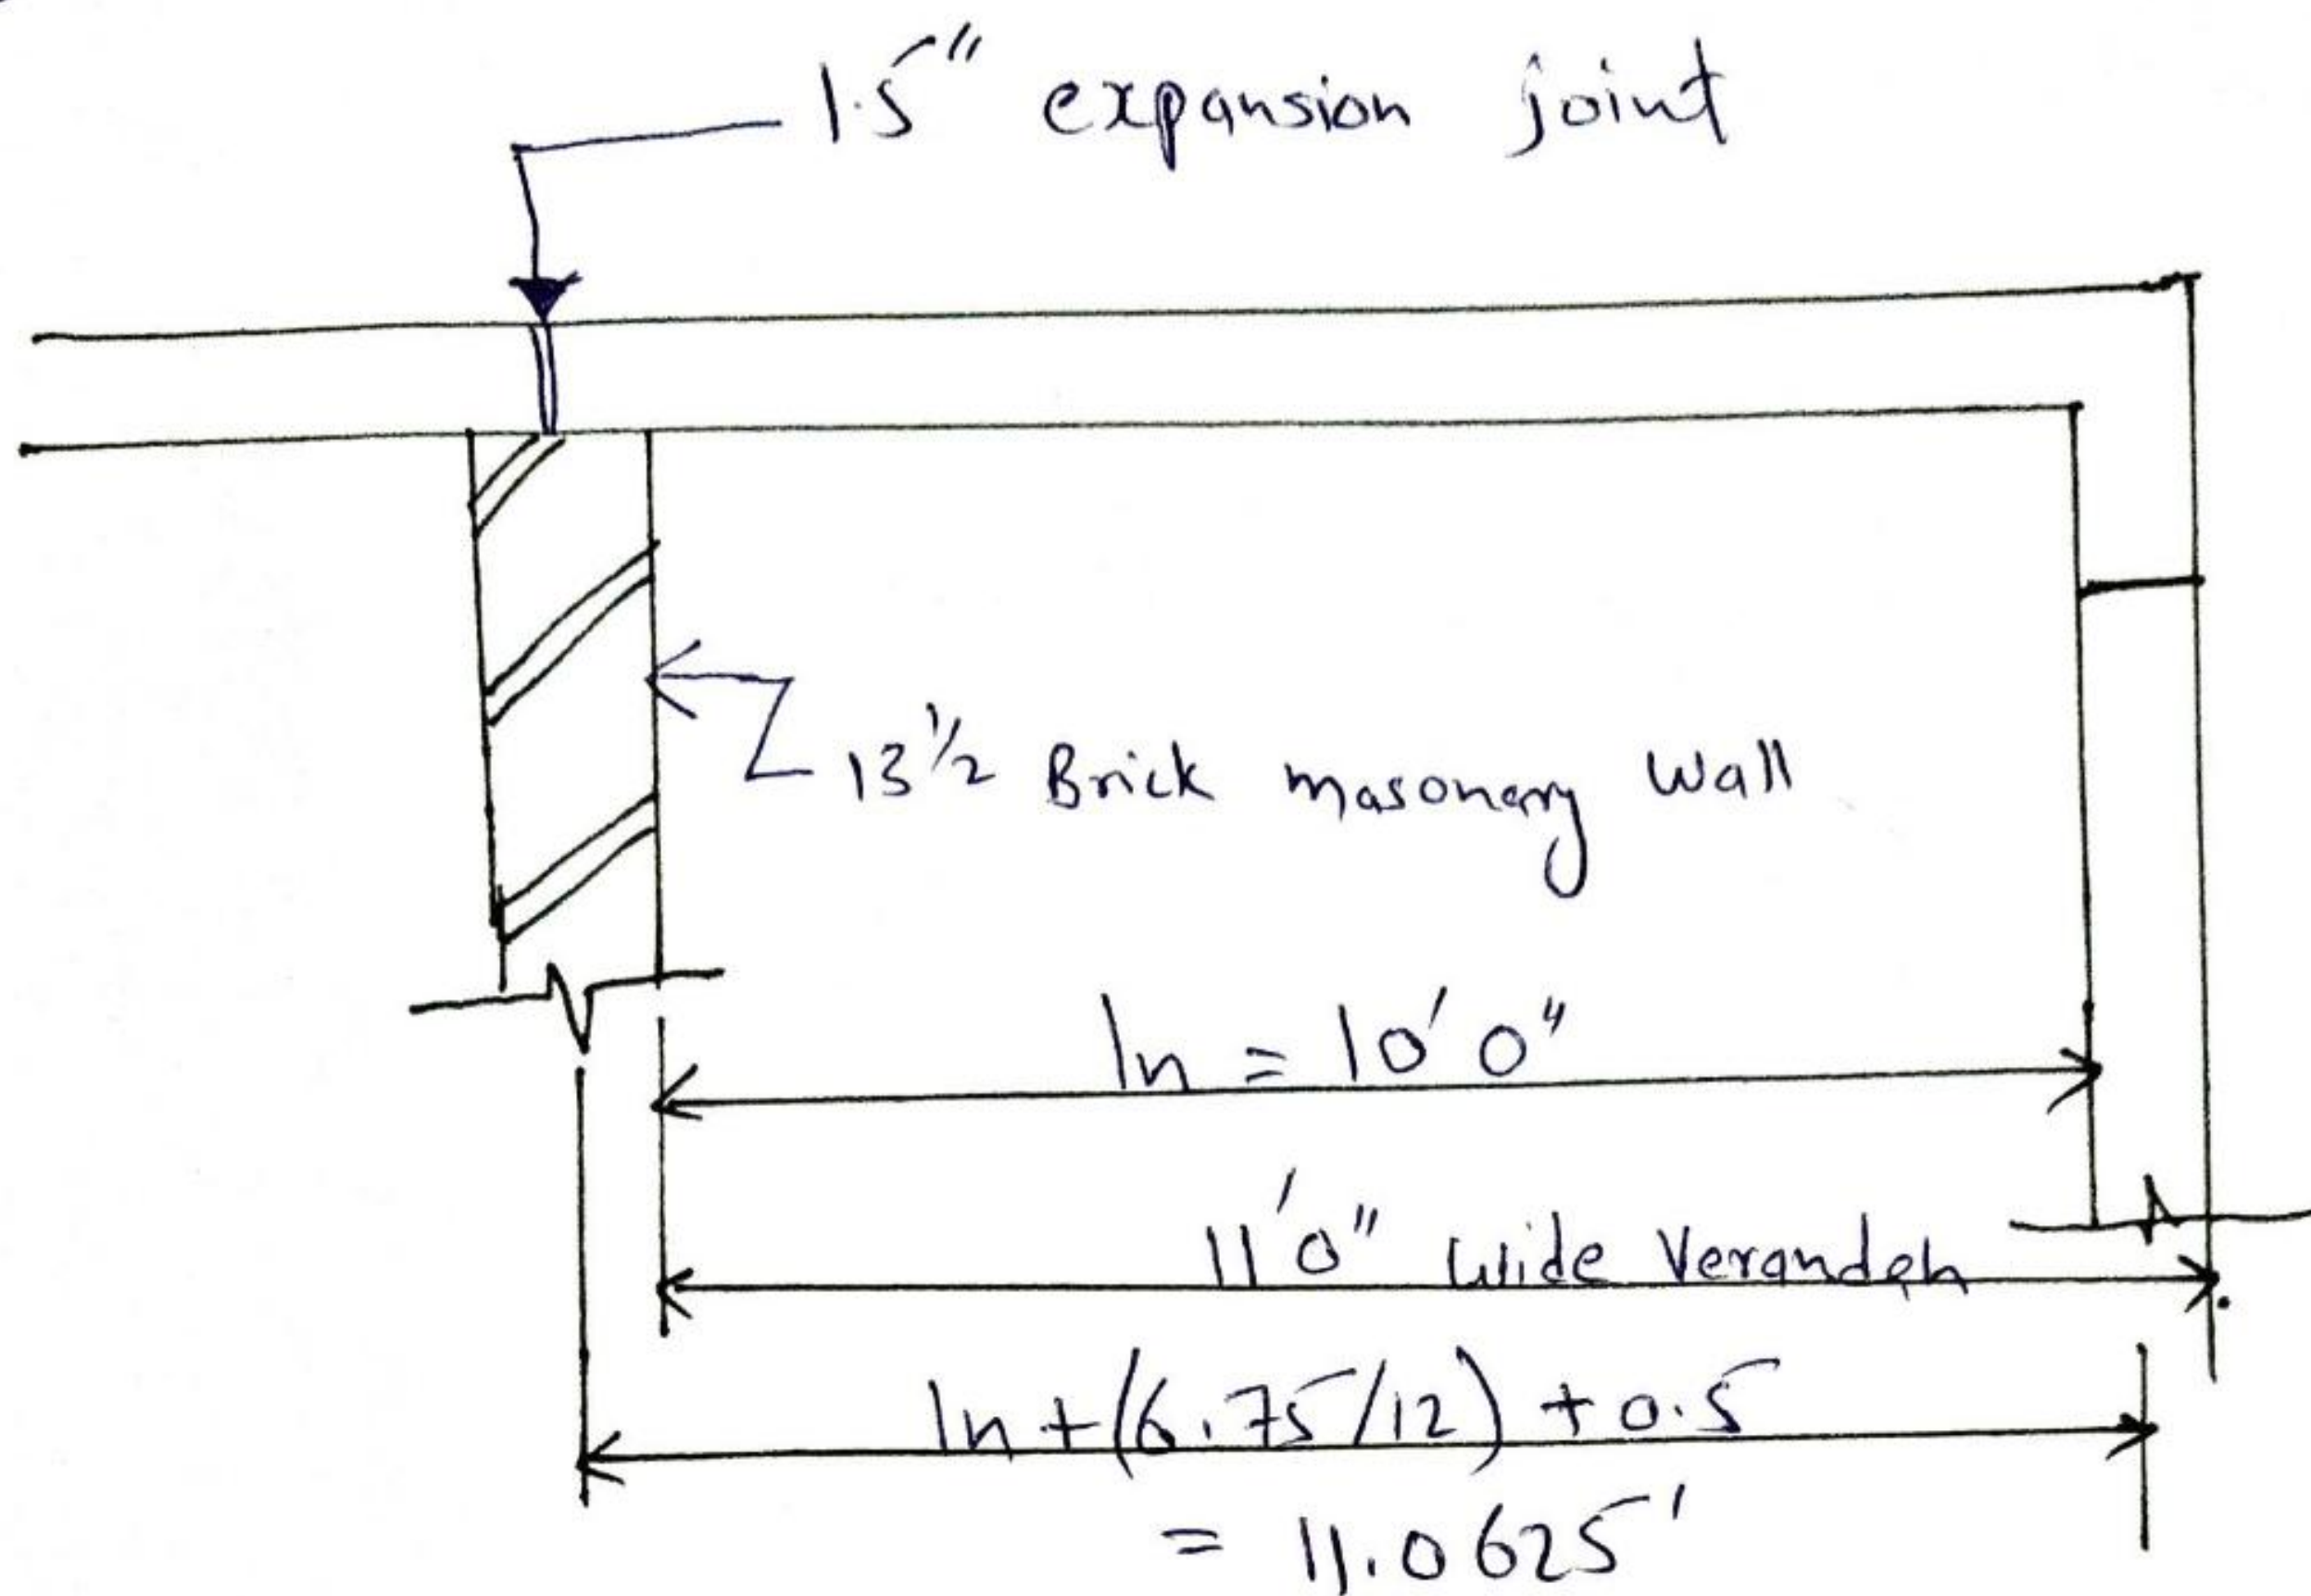 1.5" expansion joint
13½ Brick masonary Wall
ln = 10' 0"
11'0" wide Verandah
ln + (6.75/12) + 0.5
= 11.0625'